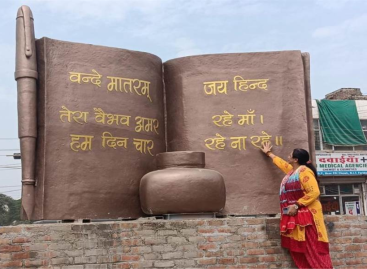 वन्दे मातरम्
तेरा वैभव अमर
हम दिन चार
जय हिन्द
रहे माँ।
रहे ना रहे॥
दवाईयाँ +
MEDICAL AGENCY